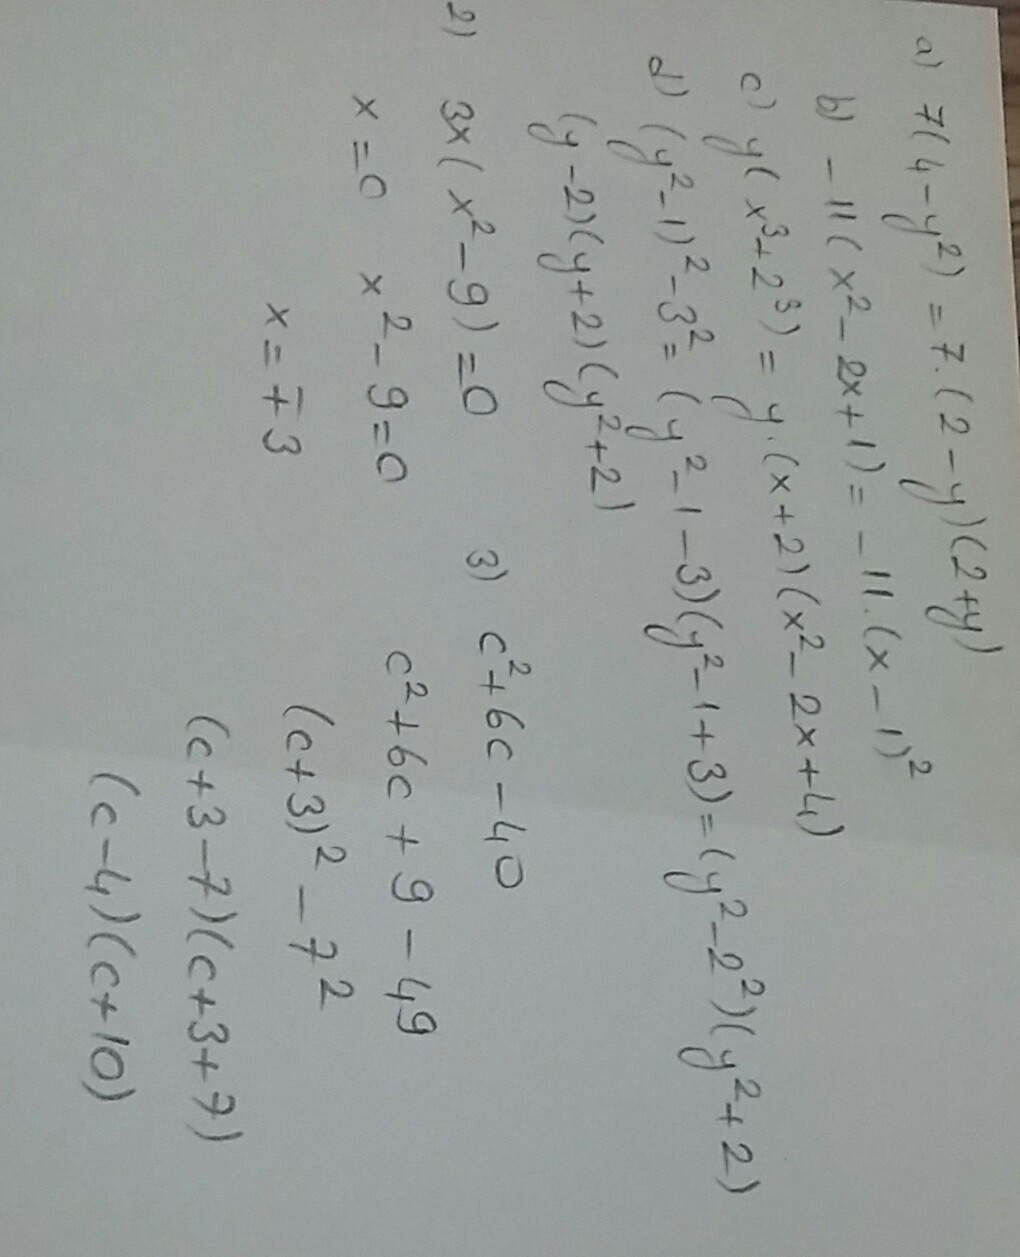 a) 7(4-y²) = 7.(2-y)(2+y)
b) -11(x²-2x+1) = -11.(x-1)²
c) y(x³+2³) = y.(x+2)(x²-2x+4)
d) (y²-1)²-3² = (y²-1-3)(y²-1+3) = (y²-2²)(y²+2)
(y-2)(y+2)(y²+2)
2) 3x(x²-9)=0
x=0 x²-9=0
x=∓3
3) c²+6c-40
c²+6c+9-49
(c+3)²-7²
(c+3-7)(c+3+7)
(c-4)(c+10)